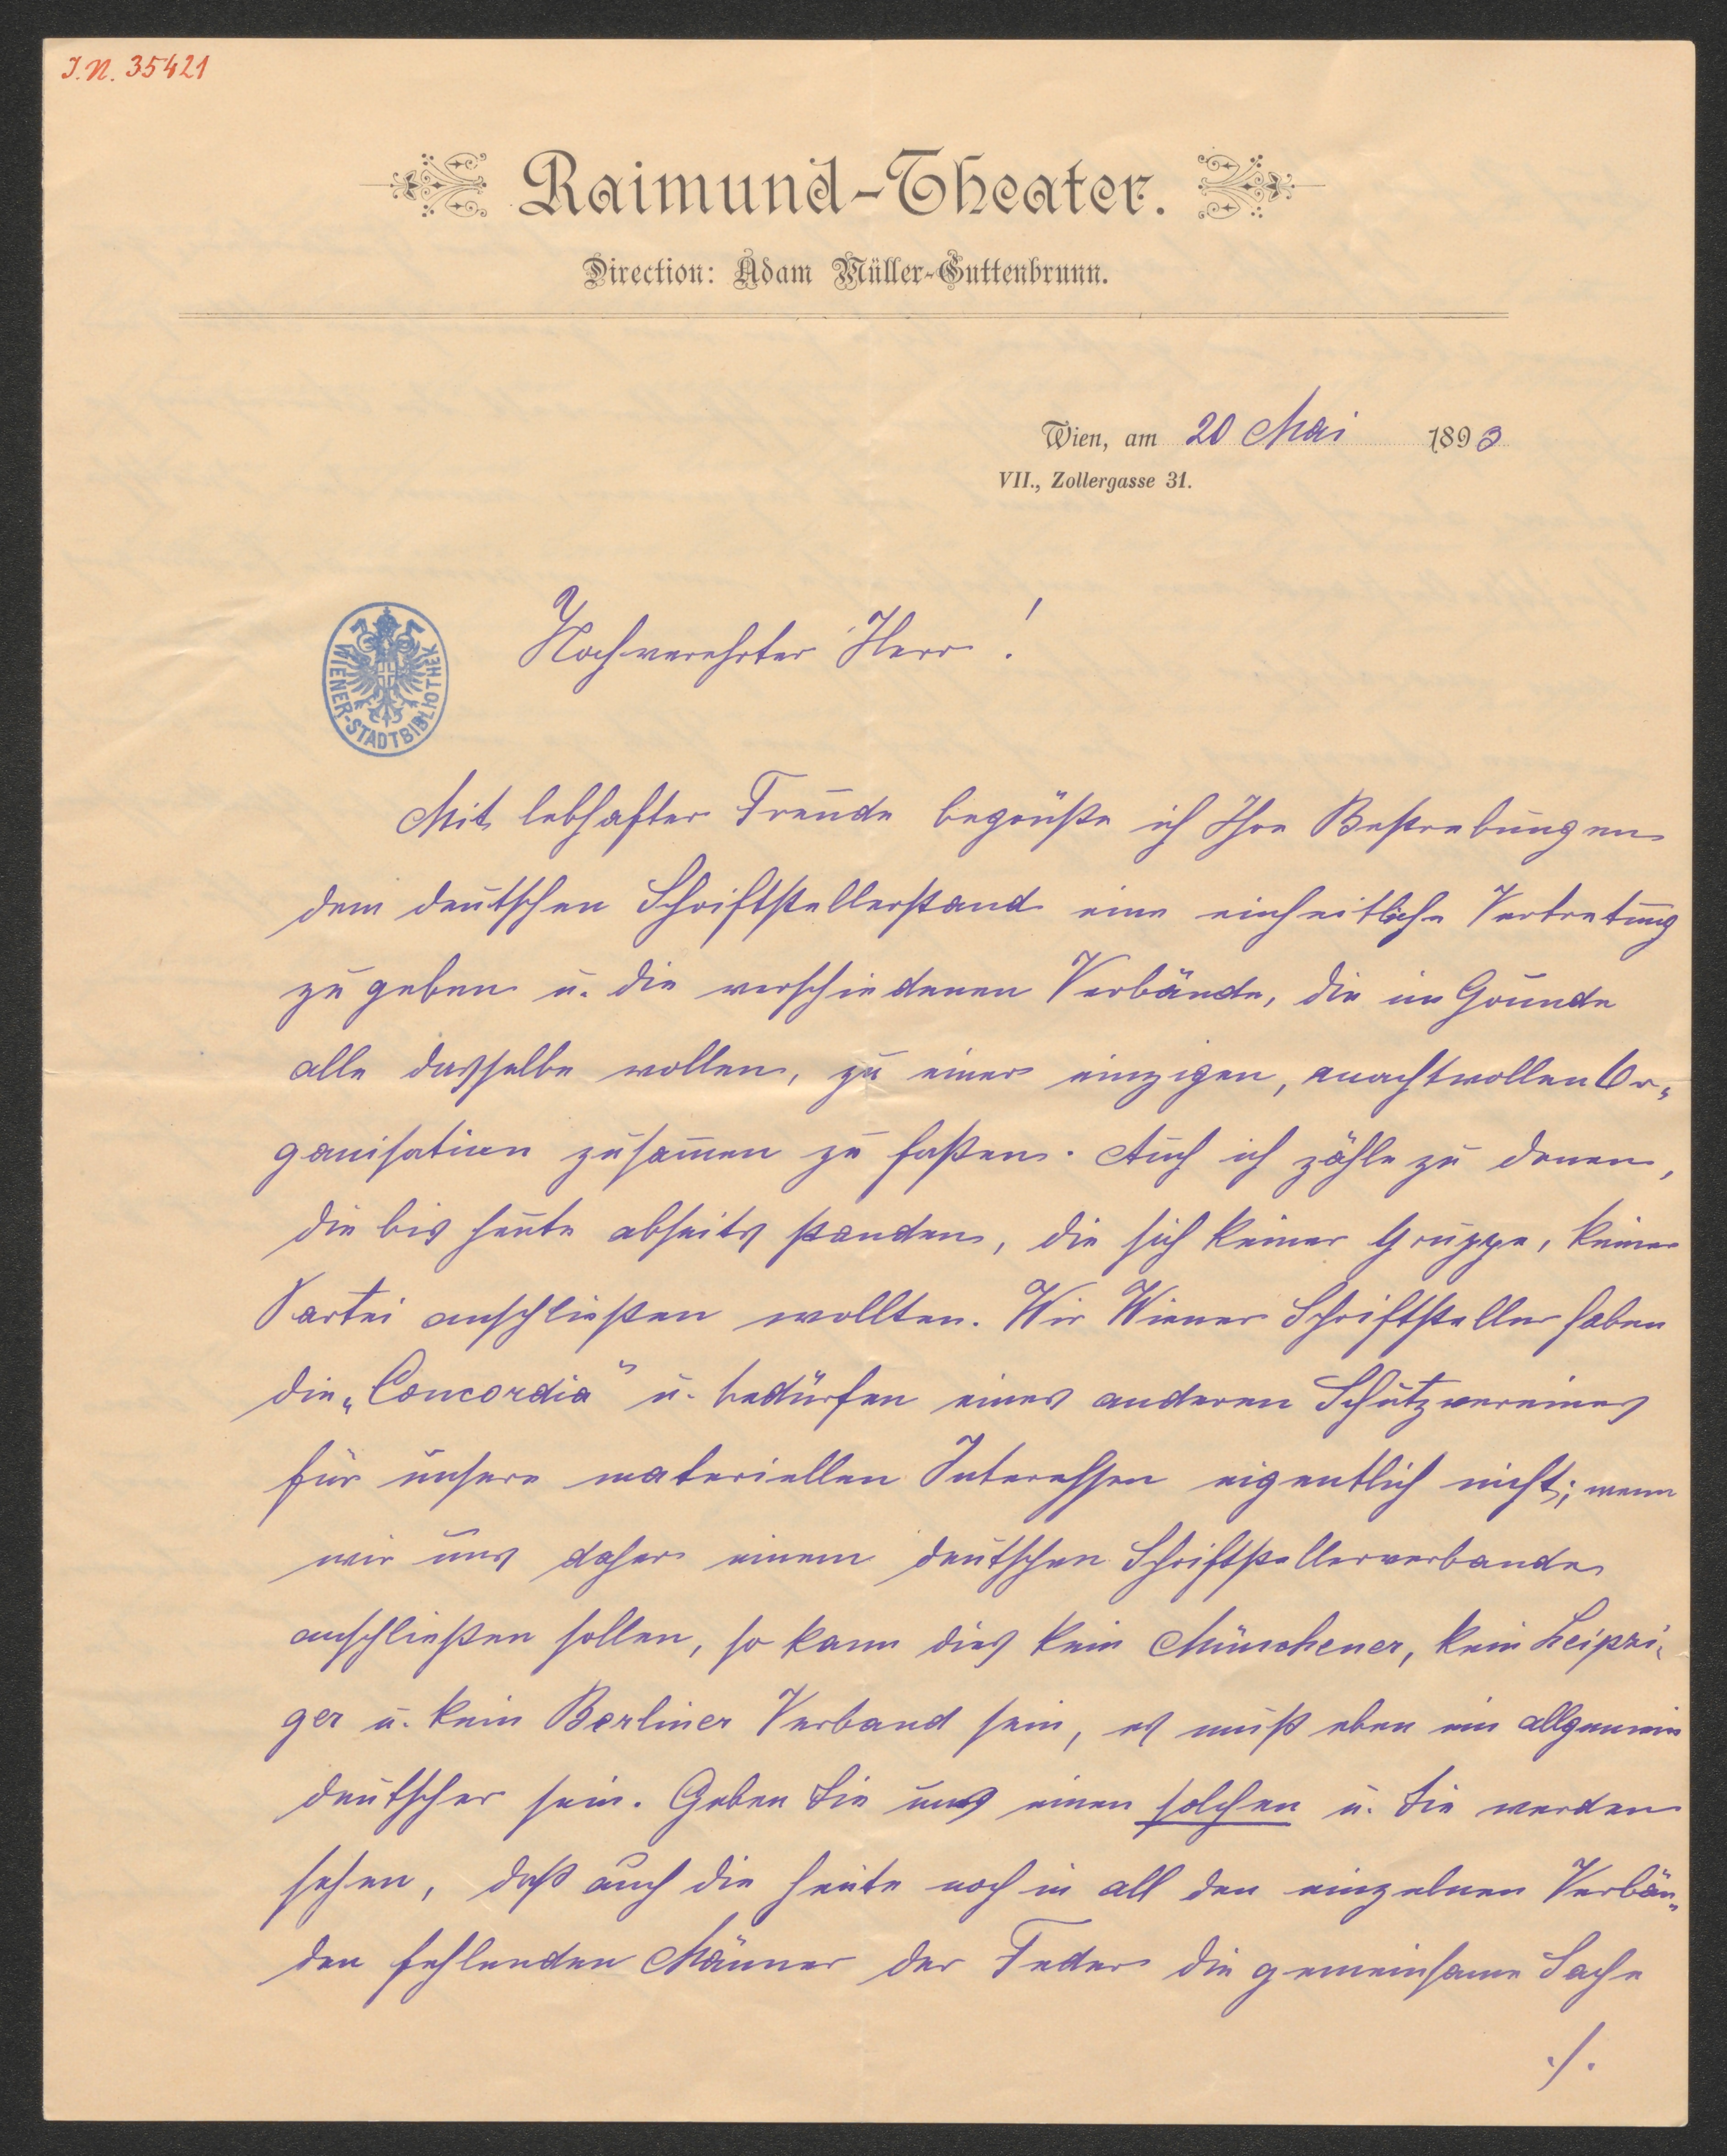 J.N. 35421
Raimund-Theater.
Direction: Adam Müller-Guttenbrunn.
Wien, am 20 Mai 1893
VII., Zollergasse 31.
WIENER-STADTBIBLIOTHEK
Hochverehrter Herr!
Mit lebhafter Freude begrüße ich Ihre Bestrebungen
dem deutschen Schriftstellerstand eine einheitliche Vertretung
zu geben u. die verschiedenen Verbände, die im Grunde
alle dasselbe wollen, zu einer einzigen, machtvollen Or-
ganisation zusam̄en zu faßen. Auch ich zähle zu denen,
die bis heute abseits standen, die sich keiner Gruppe, keiner
Partei anschließen wollten. Wir Wiener Schriftsteller haben
die „Concordia" u. bedürfen eines anderen Schutzvereines
für unsere materiellen Interessen eigentlich nicht; wenn
wir uns daher einem deutschen Schriftstellerverbande
anschließen sollen, so kann dies kein Münchener, kein Leipzi-
ger u. kein Berliner Verband sein, es muß eben ein allgemein
deutscher sein. Geben Sie uns einen solchen u. Sie werden
sehen, daß auch die heute noch in all den einzelnen Verbän-
den fehlenden Männer der Feder die gemeinsame Sache
./.